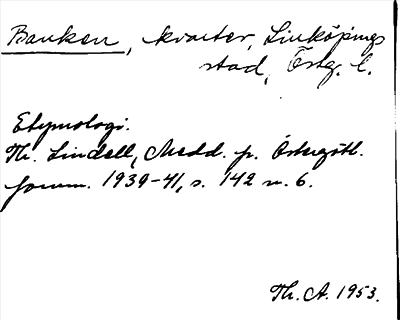 Banken, kvarter, Linköpings
stad, Östg. l.
Etymologi.
Th. Lindell, Medd. fr. Östergötl.
fornm. 1939-41, s. 142 n. 6.
Th. A. 1953.